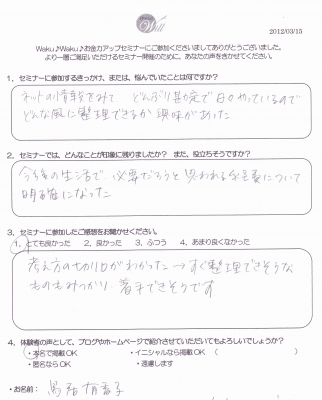 Will
2012/03/15
Waku♪Waku♪お金力アップセミナーにご参加くださいましてありがとうございました。
より一層ご満足いただけるセミナー開催のために、あなたの声をきかせてください。
1、セミナーに参加するきっかけ、または、悩んでいたことは何ですか?
ネットの情報をみて どんぶり勘定で日々やっているので
どんな風に整理できるか 興味があった
2、セミナーでは、どんなことが印象に残りましたか? また、役立ちそうですか?
今後の生活で、必要だろうと思われる必要について
明確になった
3、セミナーに参加したご感想をお聞かせください。
1、とても良かった 2、良かった 3、ふつう 4、あまり良くなかった
考え方の切り口がわかった→すぐ整理できそうな
ものもみつかり 着手できそうです
4、体験者の声として、ブログやホームページで紹介させていただいてもよろしいでしょうか?
・本名で掲載OK ・イニシャルなら掲載OK (
・匿名ならOK ・遠慮します
・お名前: